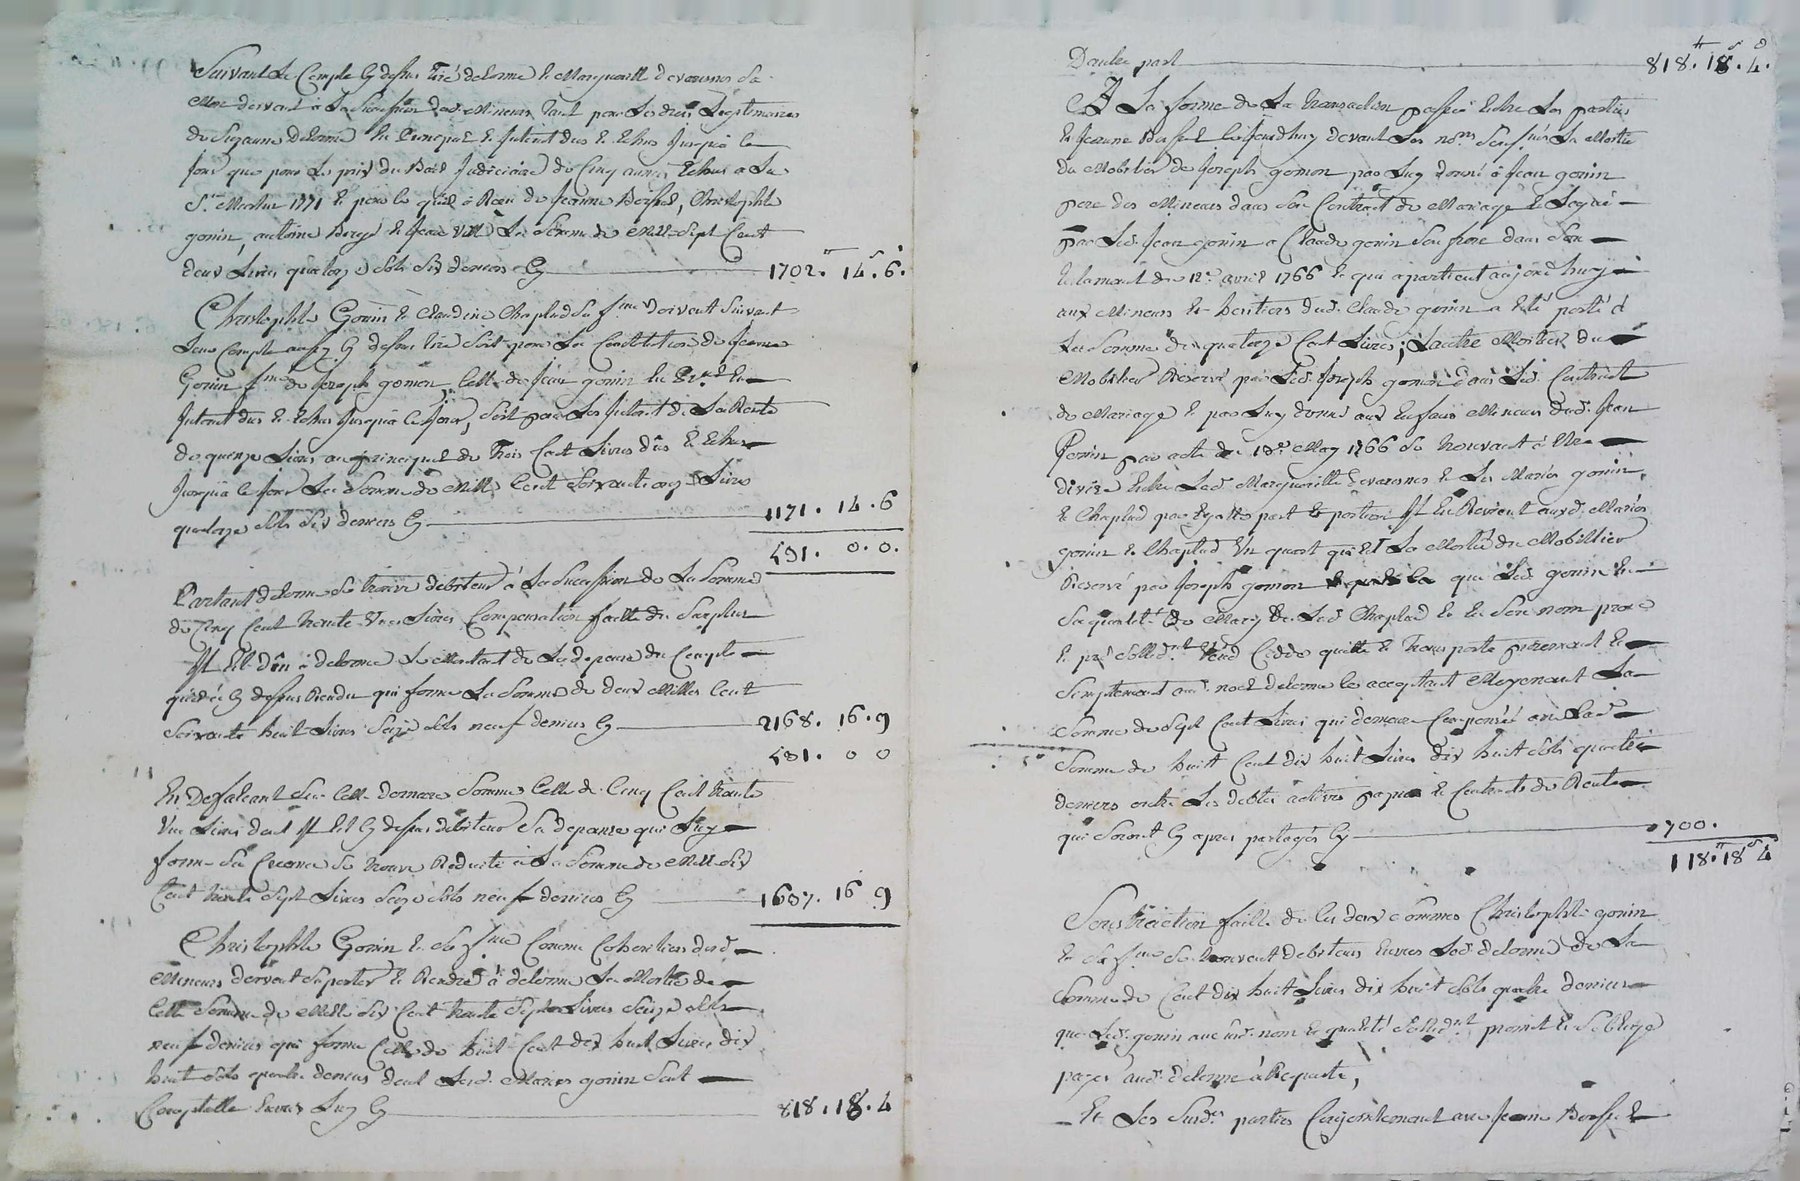 Suivant Le Compte Cy dessus tiré delorme et Margueritte devarennes Sa
Mere doivent à La Succession desd. Mineurs tant pour Les droits Legitimaires
de Suzanne delorme En Principal et Interest dus et Echus Jusqu'à ce
Jour que pour Le prix du Bail Judiciaire de Cinq années Echues a La
St. Martin 1771 et pour ce qu'il a Receu de Jeanne Boisset, Christophle
gonin, antoine et Jean La Somme de Mille Sept Cent
deux Livres quatorze Sols Six deniers Cy 1702.tt 14.s 6.
Christophle Gonin et Claudine Chaplard Sa f.me doivent Suivant
Leur Compte aussy Cy dessus tiré Soit pour La Constitution de Jeanne
Gonin f.me de Joseph gonon, celle de Jean gonin En P.al et
Interest dus et Echus Jusqu'à ce Jour, Soit pour Les Interest de La Rente
de quinze Livres au principal de Trois Cent Livres dûs et Echus
Jusqu'à ce Jour La Somme de Mille Cent Soixante onze Livres
quatorze Sols Six deniers Cy 1171. 14. 6
531. 0. 0.
Partant delorme Se trouve debiteur à La Succession de La Somme
de Cinq Cent trente Une Livres Compensation faitte du Surplus
Il Est Dû à delorme Le Montant de La depense du Compte
Cy dessus Rendu qui forme La Somme de deux Milles Cent
Soixante huit Livres Seize Sols neuf deniers Cy 2168. 16. 9
531. 0 0
En Defalcant Sur Cette derniere Somme Celle de Cinq Cent trente
Une Livres dont Il Est Cy dessus debiteur Sa depense qui Luy
forme Sa Creance Se trouve Reduitte à La Somme de Mille Six
Cent trente Sept Livres Seize Sols neuf deniers Cy 1637. 16 9
Christophle Gonin et Sa f.me Comme Coheritiers desd.
Mineurs doivent Suporter et Rendre à delorme La Moitié de
Cette Somme de Mille Six Cent trente Sept Livres Seize Sols
neuf deniers qui forme Celle de huit Cent dix huit Livres dix
huit Sols quatre deniers dont Lesd. Mariés gonin Sont
Comptable Envers Luy Cy 818. 18. 4
D'autre part 818.tt 18.s 4.d
A La forme de La transaction passée Entre Les parties
Et Jeanne Boisset Cejourdhuy devant Les no.res Soussignés La Moitié
du Mobilier de Joseph gonon par Luy donné à Jean gonin
pere des Mineurs dans Son Contract de Mariage et Legué
par Led. Jean gonin a Claude gonin Son frere dans Son
testament du 12e. avril 1766 et qui apartient aujourdhuy
aux Mineurs Et heritiers dud. Claude gonin a Eté porté à
La Somme de quatorze Cent Livres; L'autre Moitié du
Mobilier Reservé par Led. Joseph gonon dans Led. Contract
de Mariage et par Luy donné aux Enfans Mineurs dud. Jean
Gonin par acte du May 1766 Se trouvant à Etre
divisé Entre Lad. Margueritte Devarennes et Les Mariés gonin
et Chaplard par Egalle part et portion Il En Revient auxd. Mariés
gonin et Chaplard Un quart qui Est La Moitié du Mobillier
Reservé par Joseph gonon que Led. gonin En
Sa qualité De Mary De Lad. Chaplard Et En Son nom propre
et Vend Cedde quitte et Transporte purement Et
Simplement aud. noel delorme Ce acceptant Moyenant La
Somme de Sept Cent Livres qui demeure Compensée avec Lad.
Somme de huit Cent dix huit Livres dix huit Sols quatre
deniers outre Les debtes actives et Contracts de Rente
qui Seront Cy apres partagés Cy 700.
118.tt 18s 4
Soustraction faitte de Ces deux Sommes Christophle gonin
Et Sa f.me Se trouvent debiteurs Envers Led. delorme de La
Somme de Cent dix huit Livres dix huit Sols quatre deniers
que Led. gonin aux Sud. nom et qualité promet Et S'oblige
payer aud. delorme à Requeste,
Et Les Sud.es parties Conjointement avec Jeanne Boisset